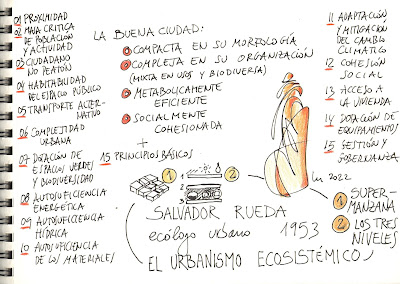 01 PROXIMIDAD
02 MASA CRITICA
DE POBLACION
Y ACTIVIDAD
03 CIUDADANO
NO PEATÓN
04 HABITABILIDAD
DEL ESPACIO PÚBLICO
05 TRANSPORTE ALTER-
NATIVO
06 COMPLEJIDAD
URBANA
07 DOTACIÓN DE
ESPACIOS VERDES
Y BIODIVERSIDAD
08 AUTOSUFICIENCIA
ENERGETICA
09 AUTOSUFICIENCIA
HÍDRICA
10 AUTOSUFICIENCIA
DE LOS MATERIALES
LA BUENA CIUDAD:
COMPACTA EN SU MORFOLOGÍA
COMPLEJA EN SU ORGANIZACIÓN
(MIXTA EN USOS Y BIODIVERSA)
METABOLICAMENTE
EFICIENTE
SOCIALMENTE
COHESIONADA
+
15 PRINCIPIOS BÁSICOS
1
2
1
2
3
SALVADOR RUEDA
ecólogo urbano 1953
EL URBANISMO ECOSISTÉMICO
2022
11 ADAPTACIÓN
Y MITIGACION
DEL CAMBIO
CLIMATICO
12 COHESIÓN
SOCIAL
13 ACCESO A
LA VIVIENDA
14 DOTACIÓN DE
EQUIPAMIENTOS
15 GESTIÓN Y
GOBERNANZA
1 SUPER-
MANZANA
2 LOS TRES
NIVELES